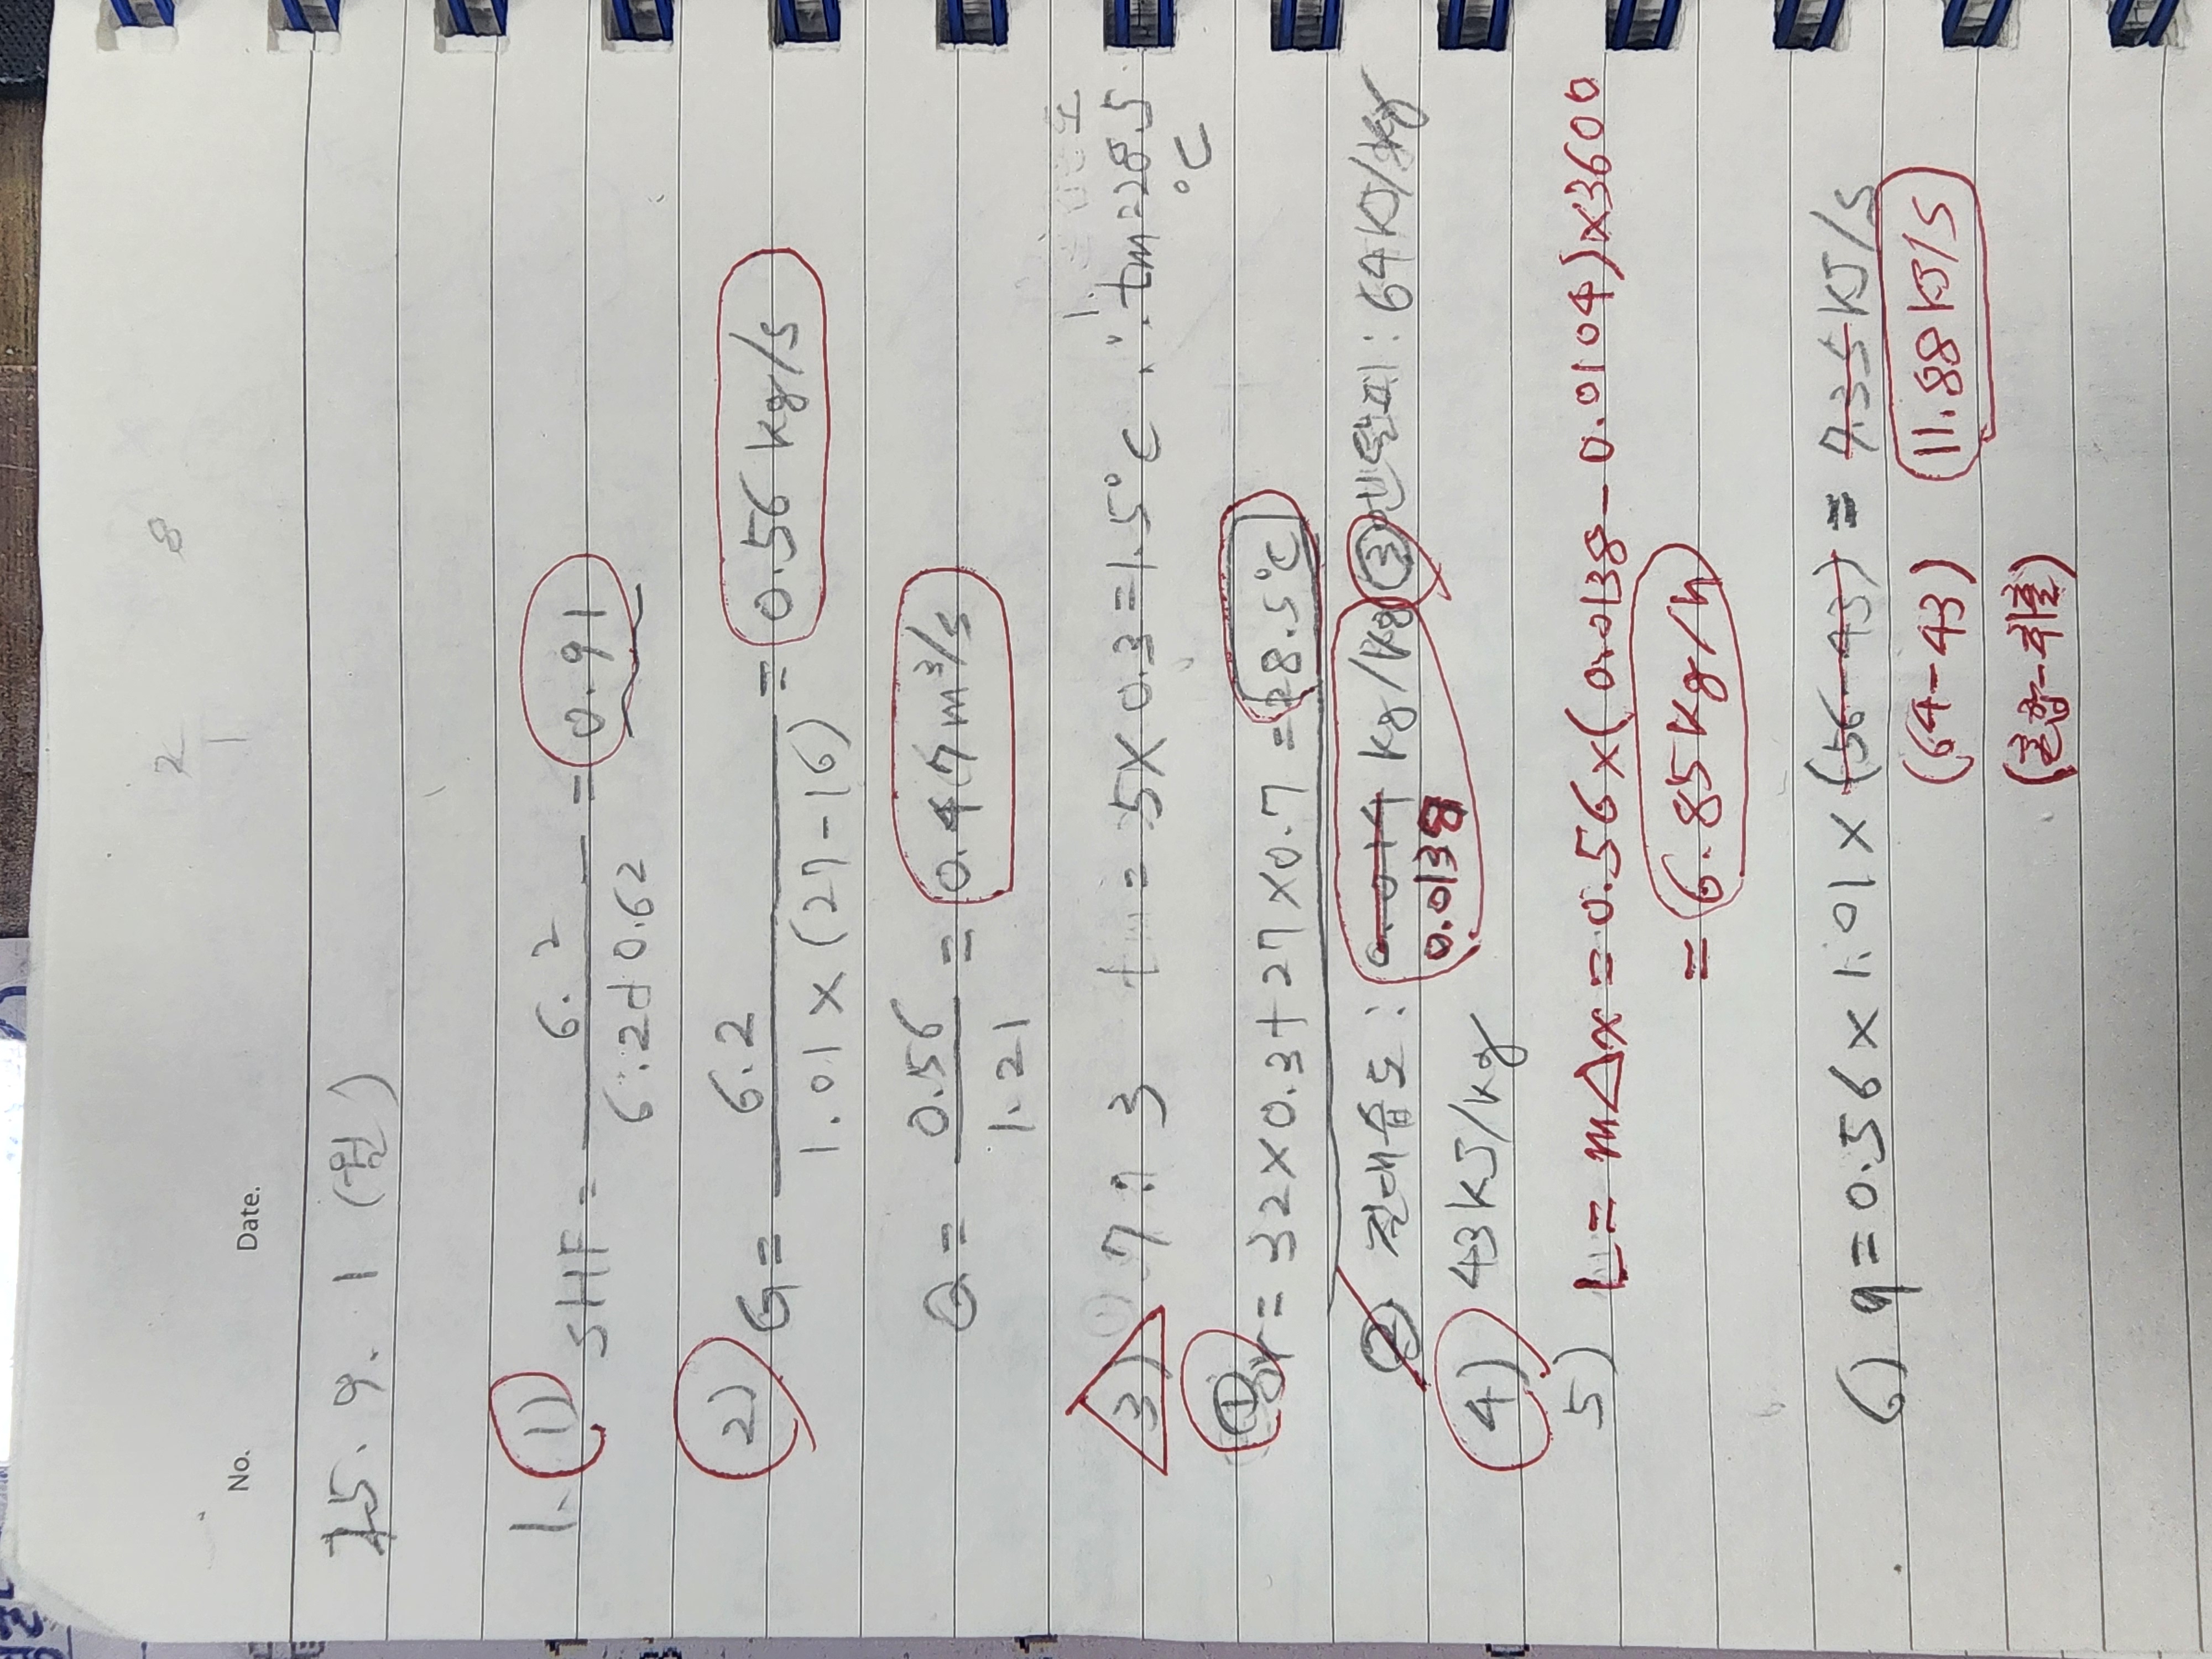 No. Date.
25. 9. 1 (월)
1. 1) SHF = 6.2 / 6.2+0.62 = 0.91
2) G = 6.2 / 1.01 × (27-16) = 0.56 kg/s
Q = 0.56 / 1.21 = 0.47 m³/s
3) 7 : 3 tm = 5×0.3 = 1.5°C ∴ tm = 28.5
°C
① = 32×0.3 + 27×0.7 = 28.5°C
② 절대습도 : 0.014 kg/kg ③ 엔탈피 : 64 KJ/kg
0.0138
4) 43 KJ/kg
5) L = m△x = 0.56×(0.0138-0.0104)×3600
= 6.85 kg/h
6) q = 0.56 × 1.01 × (56-43) = 7.35 KJ/s
(64-43) 11.88 KJ/s
(혼합-취출)